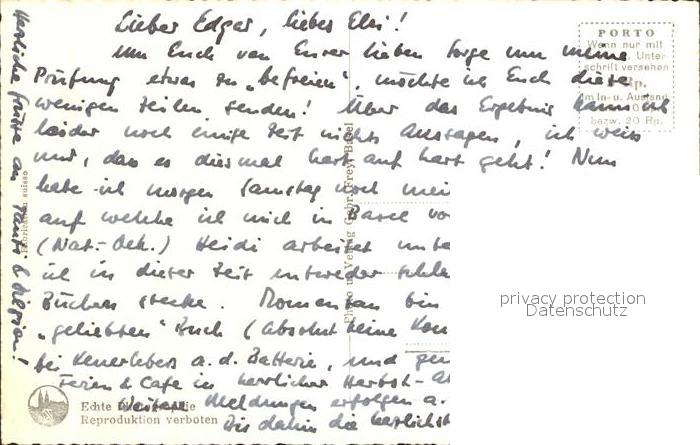 Lieber Edgar, lieber Elsi!
Um Euch von Eurer lieben Sorge um meine
Prüfung etwas zu "befreien", möchte ich Euch diese
wenigen Zeilen senden! Über das Ergebnis kann ich
leider noch einige Zeit nichts Aussagen, ich weiss
nur, das es diesmal hart auf hart geht! Nun
habe ich morgen Samstag noch mei
auf welche ich mich in Basel vo
(Nat.-Oek.) Heidi arbeitet unte
ich in dieser Zeit entweder schla
Büchern stecke. Momentan bin
"geliebten" Buch (Absolut keine Kon
bei a. d. Batterie, und gen
Ferien & Cafe in herrlicher Herbst-
Weitere Meldungen erfolgen a.
Bis dahin die herzlichst
Herzliche Grüsse an Tanti &
PORTO
Wenn nur mit
Unter-
schrift versehen
Rp.
Im In- u. Ausland
bezw. 20 Rp.
Photo u. Verlag Gebr. Frey, Basel
suisse
Echte
Reproduktion verboten
privacy protection
Datenschutz